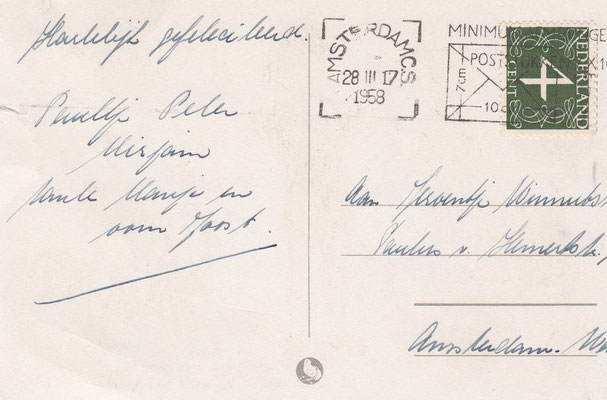 Hartelijk gefeliciteerd.
Paultje Peter
Mirjam
tante Marije en
oom Joost.
AMSTERDAM CS
28 III 17
1958
MINIMU
POSTSTUKKEN
7 cm
10
NEDERLAND
4
CENT
Aan Jeroentje
Paulus v. Hemertstr.
Amsterdam. We